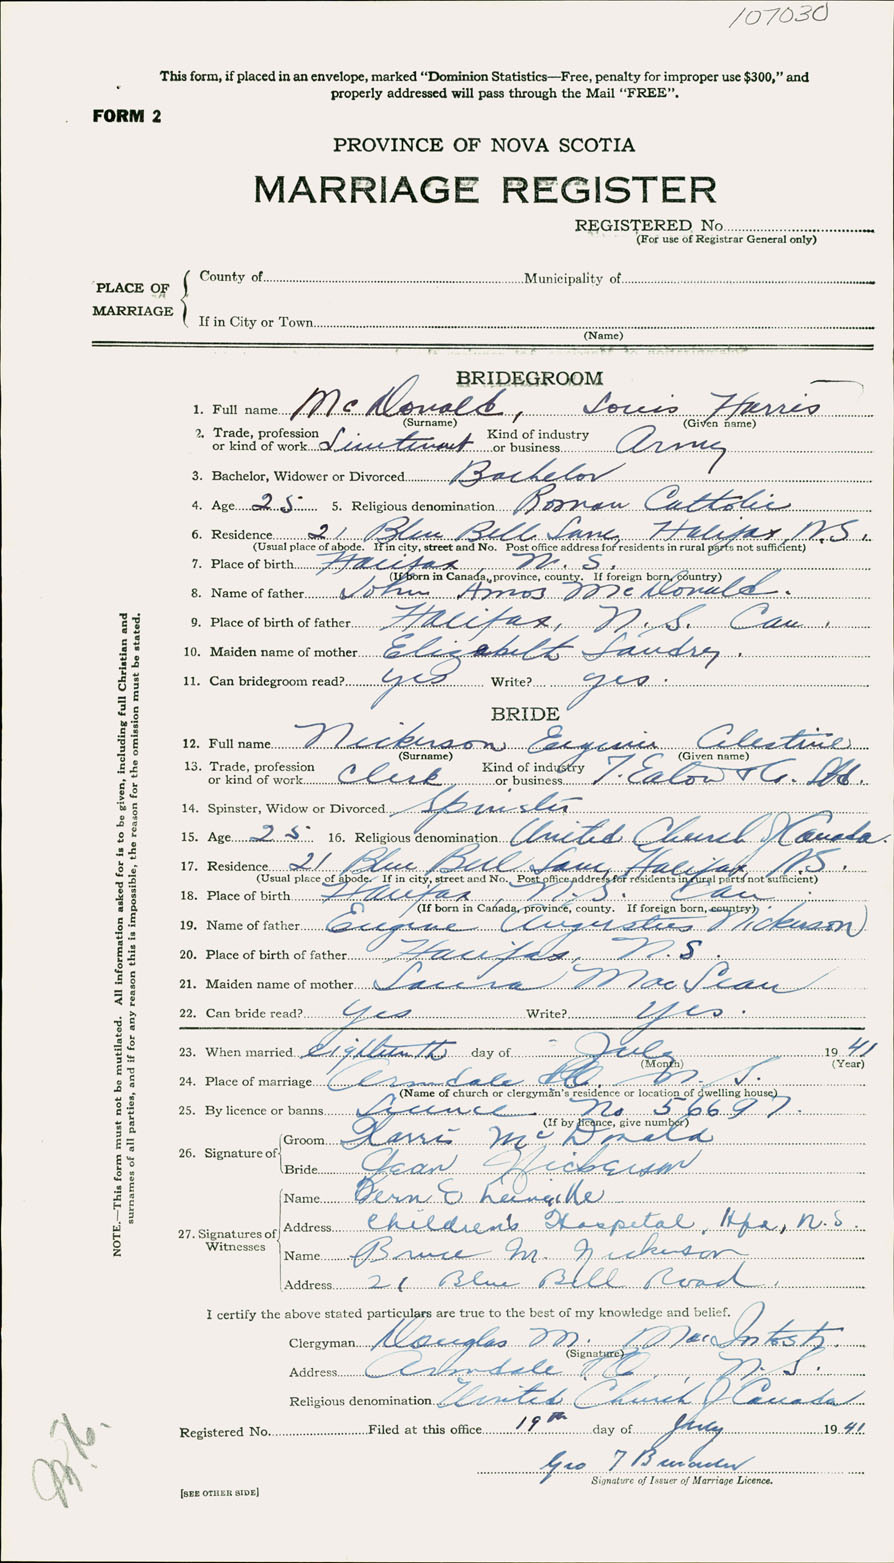 107030
This form, if placed in an envelope, marked “Dominion Statistics—Free, penalty for improper use $300,” and
properly addressed will pass through the Mail “FREE”.
FORM 2
PROVINCE OF NOVA SCOTIA
MARRIAGE REGISTER
REGISTERED No.
(For use of Registrar General only)
PLACE OF MARRIAGE
County of Municipality of
If in City or Town
(Name)
BRIDEGROOM
1. Full name McDonald, Louis Harris
(Surname) (Given name)
2. Trade, profession or kind of work Lieutenant Kind of industry or business Army
3. Bachelor, Widower or Divorced Bachelor
4. Age 25 5. Religious denomination Roman Catholic
6. Residence 21 Blue Bell Lane, Halifax, N.S.
(Usual place of abode. If in city, street and No. Post office address for residents in rural parts not sufficient)
7. Place of birth Halifax N. S.
(If born in Canada, province, county. If foreign born, country)
8. Name of father John Amos McDonald.
9. Place of birth of father Halifax, N. S. Can.
10. Maiden name of mother Elizabeth Landry.
11. Can bridegroom read? yes Write? yes.
BRIDE
12. Full name Nickerson, Eugenie Celestine
(Surname) (Given name)
13. Trade, profession or kind of work Clerk Kind of industry or business T. Eaton & Co. Ltd.
14. Spinster, Widow or Divorced Spinster
15. Age 25 16. Religious denomination United Church of Canada.
17. Residence 21 Blue Bell Lane, Halifax, N.S.
(Usual place of abode. If in city, street and No. Post office address for residents in rural parts not sufficient)
18. Place of birth Halifax, N.S. Can.
(If born in Canada, province, county. If foreign born, country)
19. Name of father Eugene Augustus Nickerson
20. Place of birth of father Halifax, N.S.
21. Maiden name of mother Laura MacLean
22. Can bride read? Yes Write? Yes.
23. When married eighteenth day of July 1941
(Month) (Year)
24. Place of marriage Armdale P.O. N. S.
(Name of church or clergyman's residence or location of dwelling house)
25. By licence or banns Licence No 56697.
(If by licence, give number)
26. Signature of
Groom Harris McDonald
Bride Jean Nickerson
27. Signatures of Witnesses
Name Bern E
Address Children's Hospital, Hfx, N.S.
Name Bruce M. Nickerson
Address 21 Blue Bell Road.
I certify the above stated particulars are true to the best of my knowledge and belief.
Clergyman Douglas M. MacIntosh.
(Signature)
Address Armdale P.O., N. S.
Religious denomination United Church of Canada
Registered No. Filed at this office 19th day of July 1941
Geo T
Signature of Issuer of Marriage Licence.
[SEE OTHER SIDE]
NOTE.—This form must not be mutilated. All information asked for is to be given, including full Christian and
surnames of all parties, and if for any reason this is impossible, the reason for the omission must be stated.